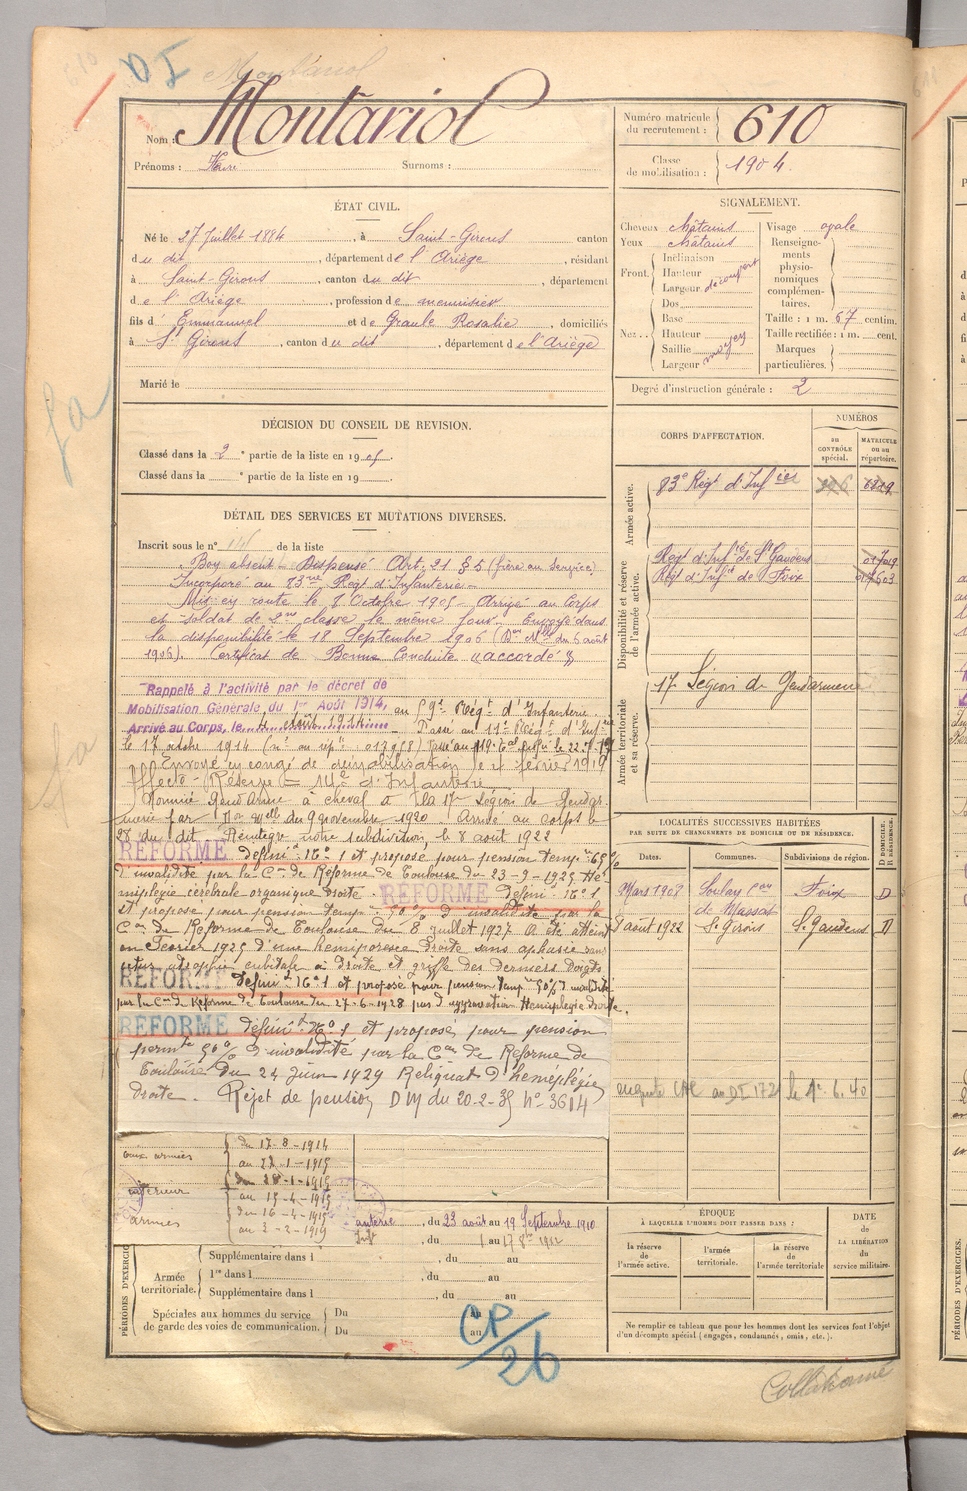 D I Montariol
Nom : Montariol
Prénoms : Henri Surnoms :
Numéro matricule du recrutement : 610
Classe de mobilisation : 1904.
ÉTAT CIVIL.
Né le 27 Juillet 1884, à Saint-Girons canton
du dit, département de l'Ariège, résidant
à Saint-Girons, canton du dit, département
de l'Ariège, profession de menuisier
fils d' Emmanuel et de Graule Rosalie, domiciliés
à St Girons, canton du dit, département de l'Ariège
Marié le
SIGNALEMENT.
Cheveux châtains
Yeux châtains
Front. Inclinaison
Hauteur
Largeur découvert
Nez.. Dos
Base
Hauteur
Saillie
Largeur moyen
Visage ovale
Renseignements physionomiques complémentaires.
Taille : 1 m. 67 centim.
Taille rectifiée : 1 m. cent.
Marques particulières.
Degré d'instruction générale : 2
DÉCISION DU CONSEIL DE REVISION.
Classé dans la 2e partie de la liste en 1905.
Classé dans la e partie de la liste en 19 .
DÉTAIL DES SERVICES ET MUTATIONS DIVERSES.
Inscrit sous le n° de la liste
Bon absent Dispensé Art. 21 § 5 (frère au service)
Incorporé au 83me Régt d'Infanterie
Mis en route le 8 Octobre 1905 – Arrivé au Corps
et soldat de 2me classe le même jour. Envoyé dans
la disponibilité le 18 Septembre 1906 (Don Mlle du 6 août
1906). Certificat de Bonne Conduite "accordé"
Rappelé à l'activité par le décret de
Mobilisation Générale du 1er Août 1914, au 59e Régt d'Infanterie.
Arrivé au Corps, le août 1914 Passé au 11e Régt d'Infie
le 17 octobre 1914
Envoyé en congé de démobilisation le février 1919
Affecté Réserve 14e d'Infanterie
Nommé Gendarme à cheval à la 17e Légion de Gendar-
merie par Don Mlle du 9 novembre 1920 Arrivé au corps le
28 du dit Réintègre notre subdivision, le 8 août 1922
RÉFORMÉ défini t N° 1 et proposé pour pension temp re 65 %
d'invalidité par la Con de Réforme de Toulouse du 23-9-1925 Hé-
miplégie cérébrale organique droite RÉFORMÉ défini t N° 1
et proposé pour pension temp re 50 % d'invalidité par la
Con de Réforme de Toulouse du 8 juillet 1927 A été atteint
en Février 1925 d'une hémiparésie droite sans aphasie sans
atrophie cubitale à droite et griffe des derniers doigts
RÉFORMÉ défini t N° 1 et proposé pour pension temp re 50 % d'invalidité
par la Con de Réforme de Toulouse du 27-6-1928 pas d'aggravation Hémiplégie droite.
RÉFORMÉ défini t N° 1 et proposé pour pension
perm te 50 % d'invalidité par la Con de Réforme de
Toulouse du 24 Juin 1929 Reliquat d'hémiplégie
droite. Rejet de pension DM du 20-2-35 N° 3614
aux armées du 17-8-1914
au 27-1-1915
intérieur du 28-1-1915
au 15-4-1915
armées du 16-4-1915
au 3-2-1919
CORPS D'AFFECTATION.
NUMÉROS
au CONTRÔLE spécial.
MATRICULE ou au répertoire.
Armée active.
83e Régt d'Infie
Disponibilité et réserve de l'armée active.
Régt d'Infie de St Gaudens
Régt d'Infie de Foix
Armée territoriale et sa réserve.
17 Légion de Gendarmerie
LOCALITÉS SUCCESSIVES HABITÉES
PAR SUITE DE CHANGEMENTS DE DOMICILE OU DE RÉSIDENCE.
Dates. Communes. Subdivisions de région. D DOMICILE. R RÉSIDENCE.
Mars 1908 Soulan con de Massat Foix D
8 août 1922 St Girons St Gaudens D
le 1er 6.40
PÉRIODES D'EXERCICES
anterie, du 23 août au 19 Septembre 1910.
, du 1 au 17 8bre 1912
Armée territoriale.
Supplémentaire dans l , du au
1re dans l , du au
Supplémentaire dans l , du au
Spéciales aux hommes du service de garde des voies de communication.
Du au
Du au
ÉPOQUE
À LAQUELLE L'HOMME DOIT PASSER DANS :
la réserve de l'armée active.
l'armée territoriale.
la réserve de l'armée territoriale
DATE DE LA LIBÉRATION du service militaire.
Ne remplir ce tableau que pour les hommes dont les services font l'objet
d'un décompte spécial (engagés, condamnés, omis, etc.).
CP/26
Collationné